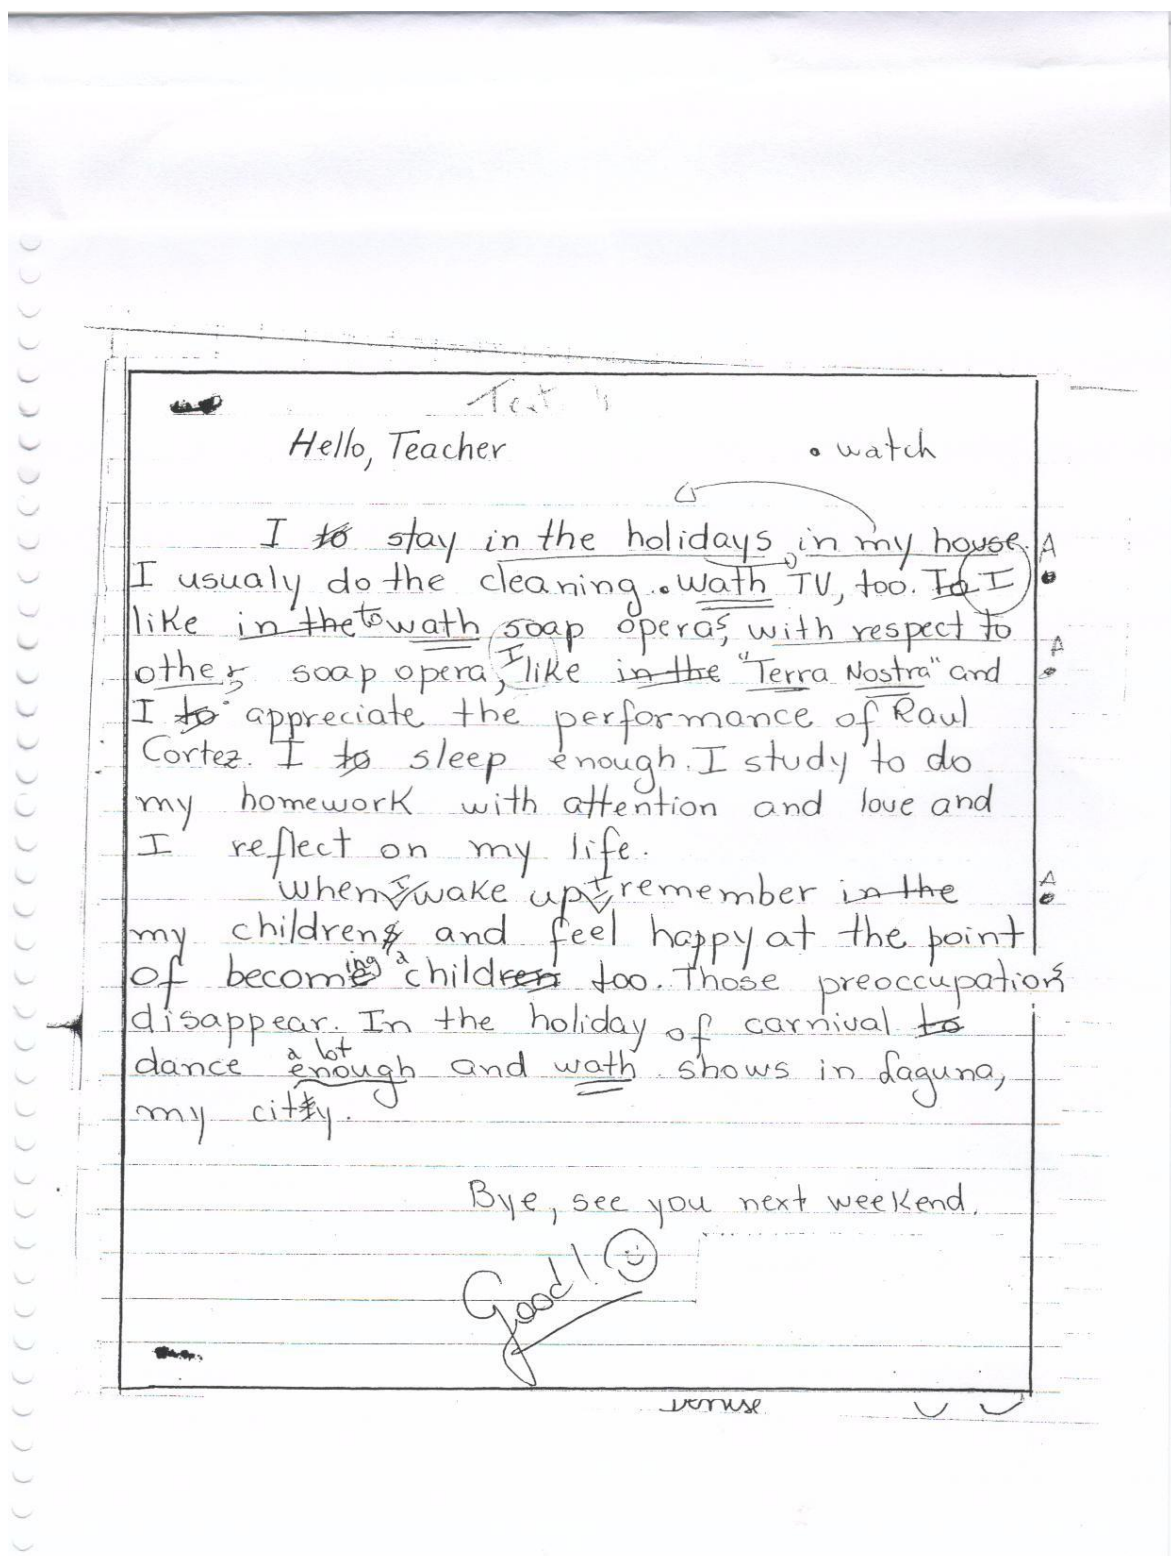 Text 4
Hello, Teacher
• watch
I to stay in the holidays in my house. A
I usualy do the cleaning. wath TV, too. To I
like in the to wath soap operas, with respect to
other soap opera, I like in the "Terra Nostra" and A
I to appreciate the performance of Raul
Cortez. I to sleep enough. I study to do
my homework with attention and love and
I reflect on my life.
When I wake up I remember in the A
my childrens and feel happy at the point
of becoming a children too. Those preoccupations
disappear. In the holiday of carnival to
a lot
dance enough and wath shows in Laguna,
my citty.
Bye, see you next weekend.
Good!
Denise